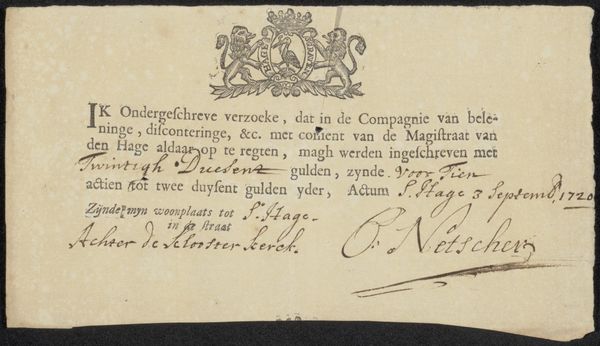 HAGE
IK Ondergeschreve verzoeke, dat in de Compagnie van bele-
ninge, disconteringe, &c. met consent van de Magistraat van
den Hage aldaar op te regten, magh werden ingeschreven met
Twintigh Duesent gulden, zynde voor Tien
actien tot twee duysent gulden yder, Actum S. Hage 3 Septemb. 1720
Zynde myn woonplaats tot S. Hage.
in de straat
Achter de Clooster Kerck. C. Netscher